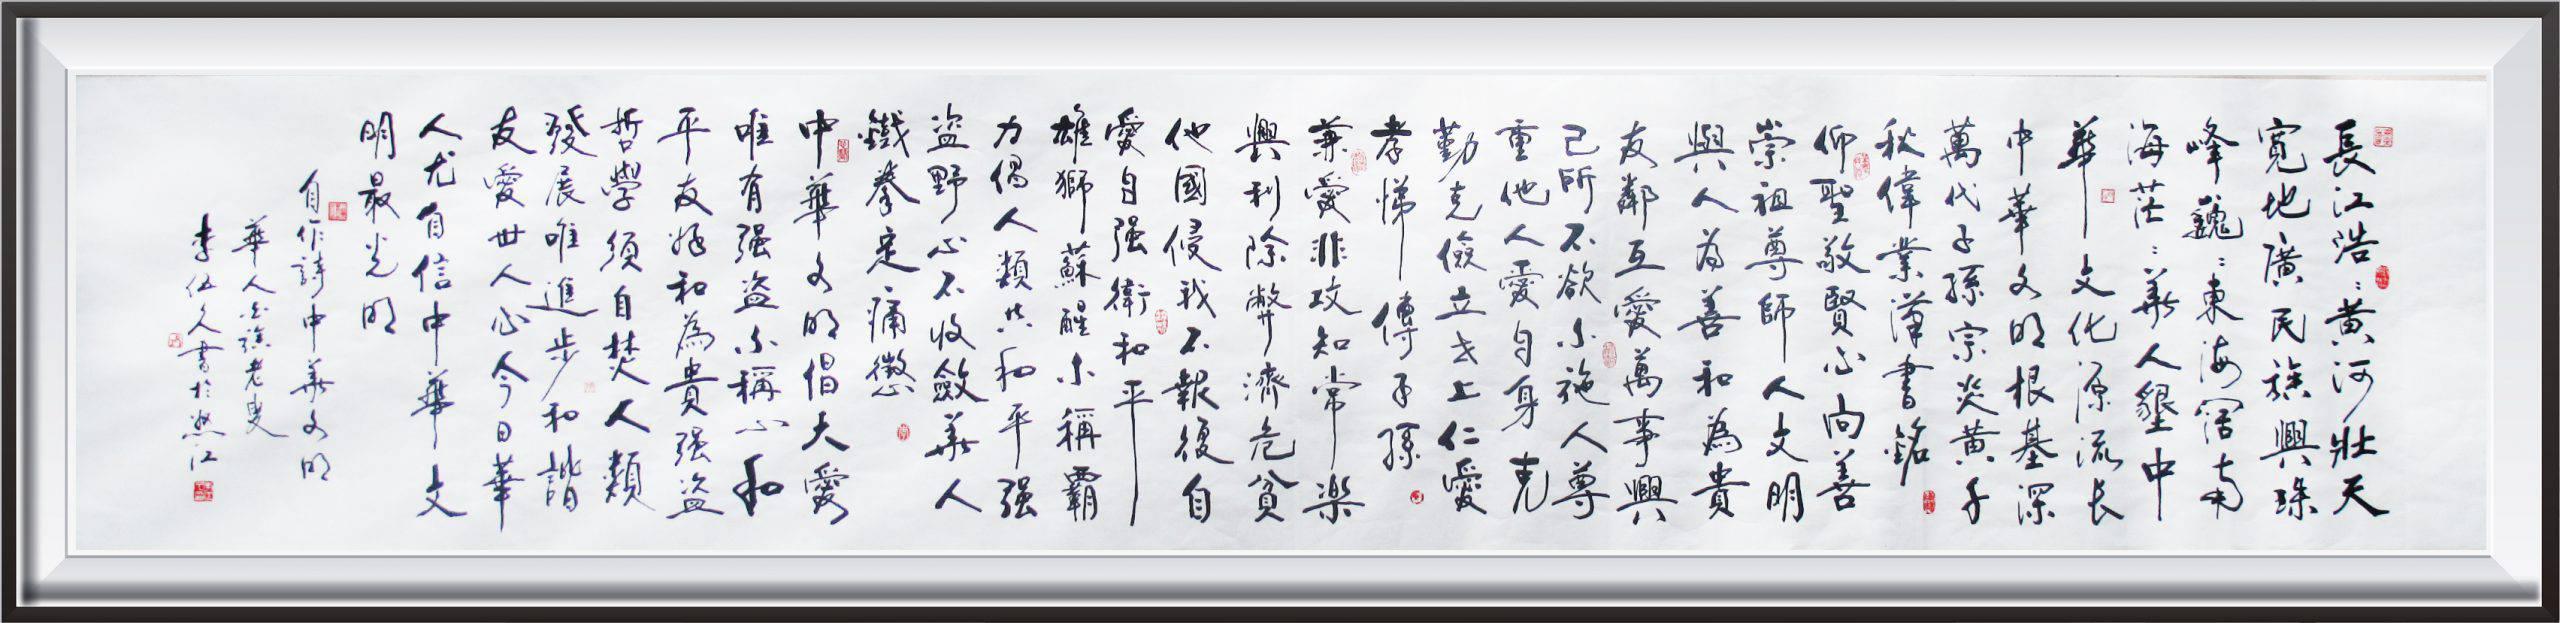 長江浩〻黄河壯天
寬地廣民族興珠
峰巍〻東海闊南
海茫〻華人墾中
華文化源流长
中華文明根基深
萬代子孫宗炎黄千
秋偉業漢書銘
仰聖敬賢心向善
崇祖尊師人文明
與人為善和為貴
友鄰互愛萬事興
己所不欲不施人尊
重他人愛自身克
勤克儉立世上仁愛
孝悌傳子孫
兼愛非攻知常樂
興利除弊濟危貧
他國侵我不報復自
愛自强衛和平
雄獅蘇醒不稱霸
力倡人類共和平强
盗野心不收斂華人
鐵拳定痛懲
中華文明倡大愛
唯有强盗不稱心和
平友好和為貴强盗
哲學須自焚人類
發展唯進步和諧
友愛世人心今日華
人尤自信中華文
明最光明
自作詩中華文明
華人老叟
李伍久書於江